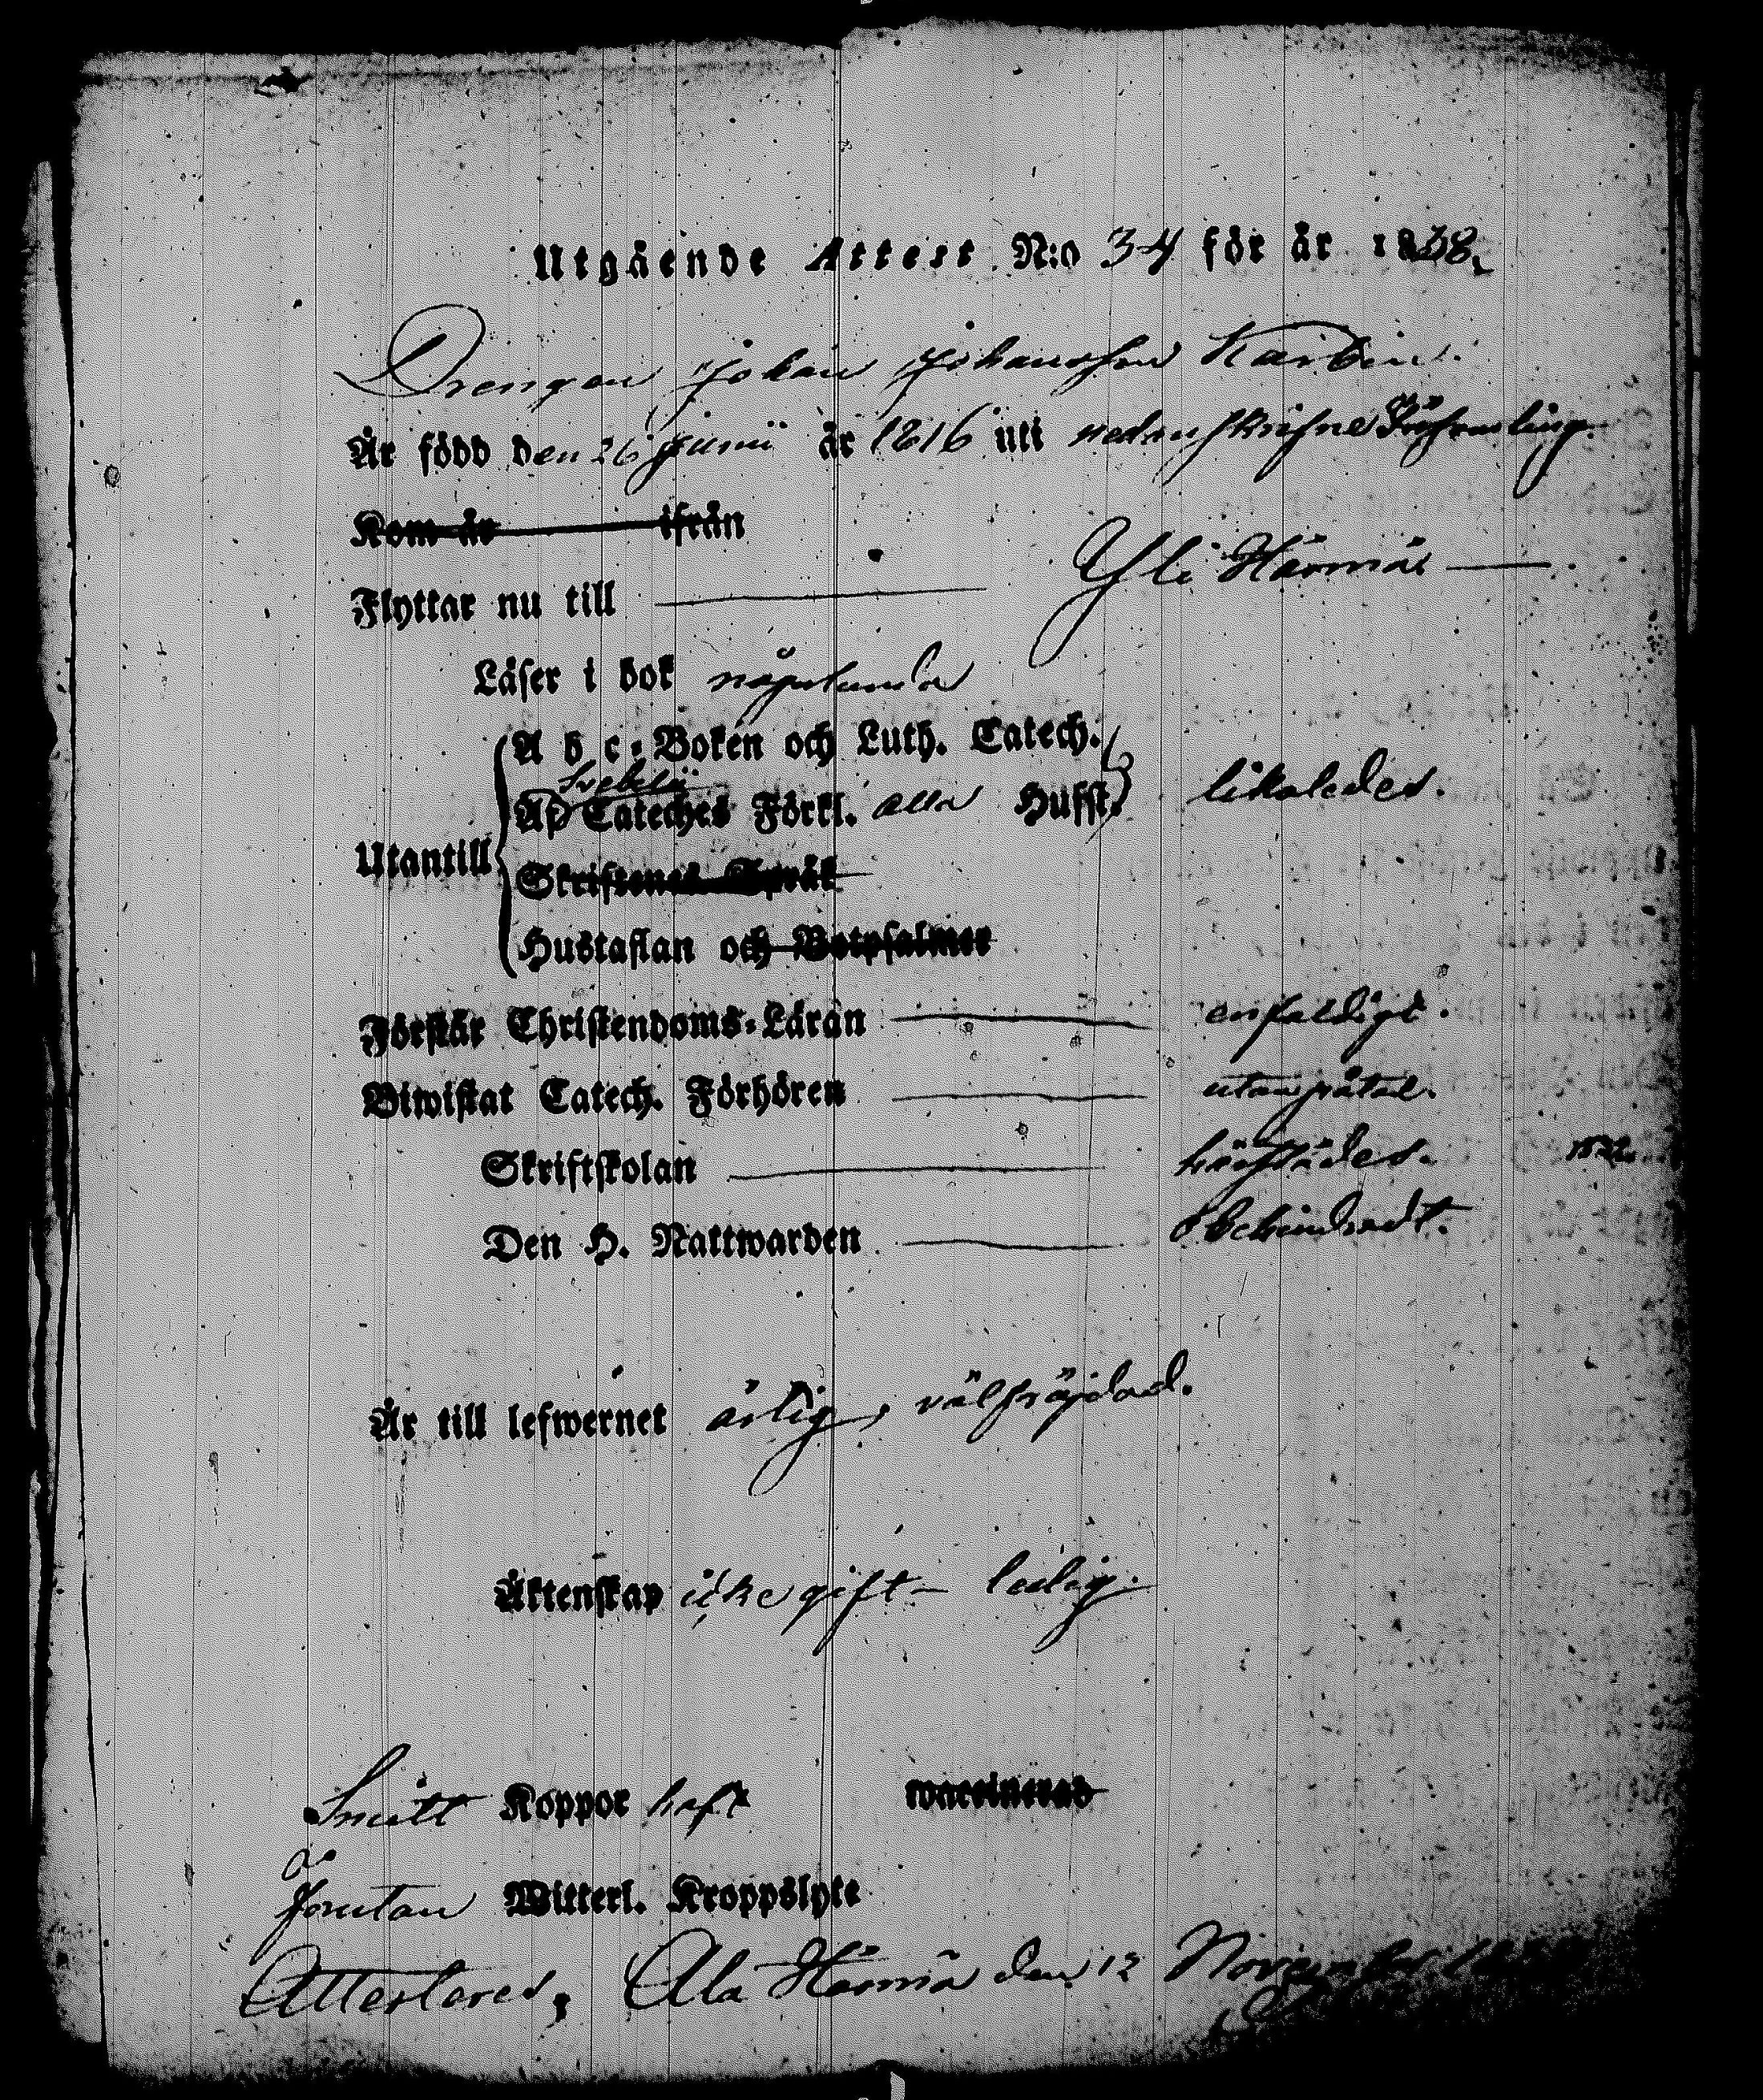 Utgående Attest N:o 34 för år 1838.
Drengen Johan Johansson Karbin.
Är född den 26 Junii år 1816 uti nedanskrifne Församling.
Kom år ifrån
Flyttar nu till Yli Härmä
Läser i bok någorlunda
A b c-Boken och Luth. Catech.
Svebilii
Catechés Förkl. alla Husst. likaledes.
Utantill
Skriftenes Språk
Hustaflan och Botpsalmer
Förstår Christendoms-Läran enfaldigt.
Biwistat Catech. Förhören utan påtal.
Skriftskolan härstädes.
Den H. Nattwarden obehindradt.
Är till lefwernet ärlig, välfräjdad.
Äktenskap icke gift - ledig.
Koppor haft waccinerad
Förutan Witterl. Kroppslyte
Attesteres, Ala Härmä den 12 November